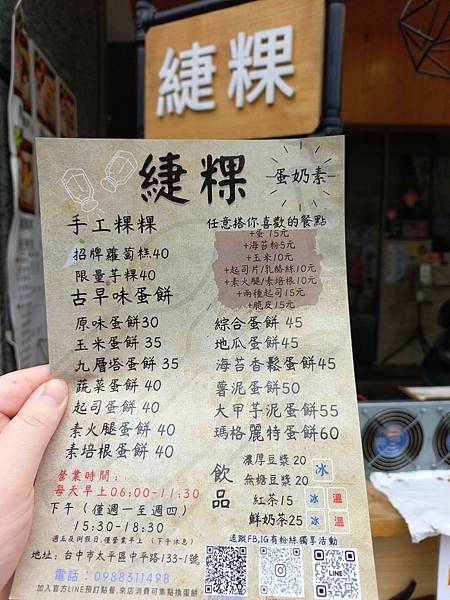 緁粿
緁粿
蛋奶素
手工粿粿
招牌蘿蔔糕40
限量芋粿40
古早味蛋餅
原味蛋餅30
玉米蛋餅 35
九層塔蛋餅 35
蔬菜蛋餅 40
起司蛋餅 40
素火腿蛋餅 40
素培根蛋餅 40
任意搭你喜歡的餐點
+蛋 15元
+海苔粉5元
+玉米10元
+起司片/乳酪絲10元
+素火腿/素培根10元
+兩種起司15元
+脆皮15元
綜合蛋餅 45
地瓜蛋餅 45
海苔香鬆蛋餅45
薯泥蛋餅50
大甲芋泥蛋餅55
瑪格麗特蛋餅60
飲品
濃厚豆漿 20
無糖豆漿 20
冰
紅茶15 冰 溫
鮮奶茶25 冰 溫
營業時間:
每天早上06:00-11:30
下午 (僅週一至週四)
15:30-18:30
週五及例假日,僅營業早上 (下午休息)
地址: 台中市太平區中平路133-1號
電話: 0988311498
加入官方LINE預訂點餐,來店消費可集點換蛋餅
追蹤FB,IG有粉絲獨享活動
LINE